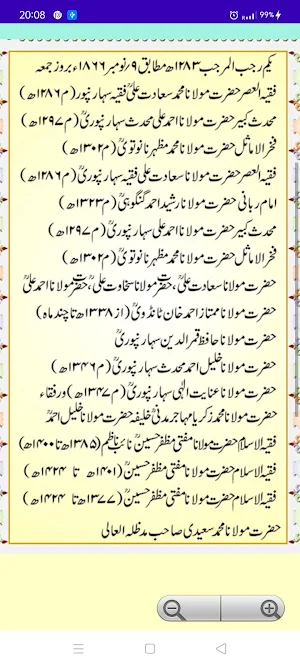 20:08
99%
یکم رجب المرجب ۱۲۸۳ھ مطابق ۹؍نومبر ۱۸۶۶ء بروز جمعہ
فقیہ العصر حضرت مولانا محمد سعادت علیؒ فقیہ سہارنپور (م ۱۲۸۶ھ)
محدث کبیر حضرت مولانا احمد علی محدث سہارنپوریؒ (م ۱۲۹۷ھ)
فخر الاماثل حضرت مولانا محمد مظہر نانوتویؒ (م ۱۳۰۲ھ)
فقیہ العصر حضرت مولانا سعادت علی فقیہ سہارنپوریؒ (م ۱۲۸۶ھ)
امام ربانی حضرت مولانا رشید احمد گنگوہیؒ (م ۱۳۲۳ھ)
محدث کبیر حضرت مولانا احمد علی سہارنپوریؒ (م ۱۲۹۷ھ)
فخر الاماثل حضرت مولانا محمد مظہر نانوتویؒ (م ۱۳۰۲ھ)
حضرت مولانا سعادت علیؒ، حضرت مولانا سخاوت علیؒ، حضرت مولانا احمد علیؒ
حضرت مولانا ممتاز احمد خان ٹانڈویؒ (از ۱۳۳۸ھ تا چند ماہ)
حضرت مولانا حافظ قمر الدین سہارنپوریؒ
حضرت مولانا خلیل احمد محدث سہارنپوریؒ (م ۱۳۴۶ھ)
حضرت مولانا عنایت الٰہی سہارنپوریؒ (م ۱۳۴۷ھ) ورفقاء
حضرت مولانا محمد زکریا مہاجر مدنیؒ خلیفہ حضرت مولانا خلیل احمدؒ
فقیہ الاسلام حضرت مولانا مفتی مظفر حسینؒ نائب ناظم (۱۳۸۵ھ تا ۱۴۰۰ھ)
فقیہ الاسلام حضرت مولانا مفتی مظفر حسینؒ (۱۴۰۱ھ تا ۱۴۲۴ھ)
فقیہ الاسلام حضرت مولانا مفتی مظفر حسینؒ (۱۳۷۷ھ تا ۱۴۲۴ھ)
حضرت مولانا محمد سعیدی صاحب مدظلہ العالی